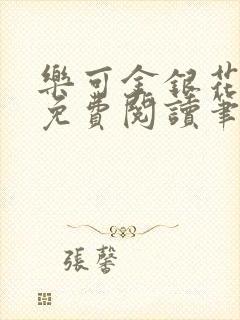 樂可金銀花
免費閱讀筆
張馨